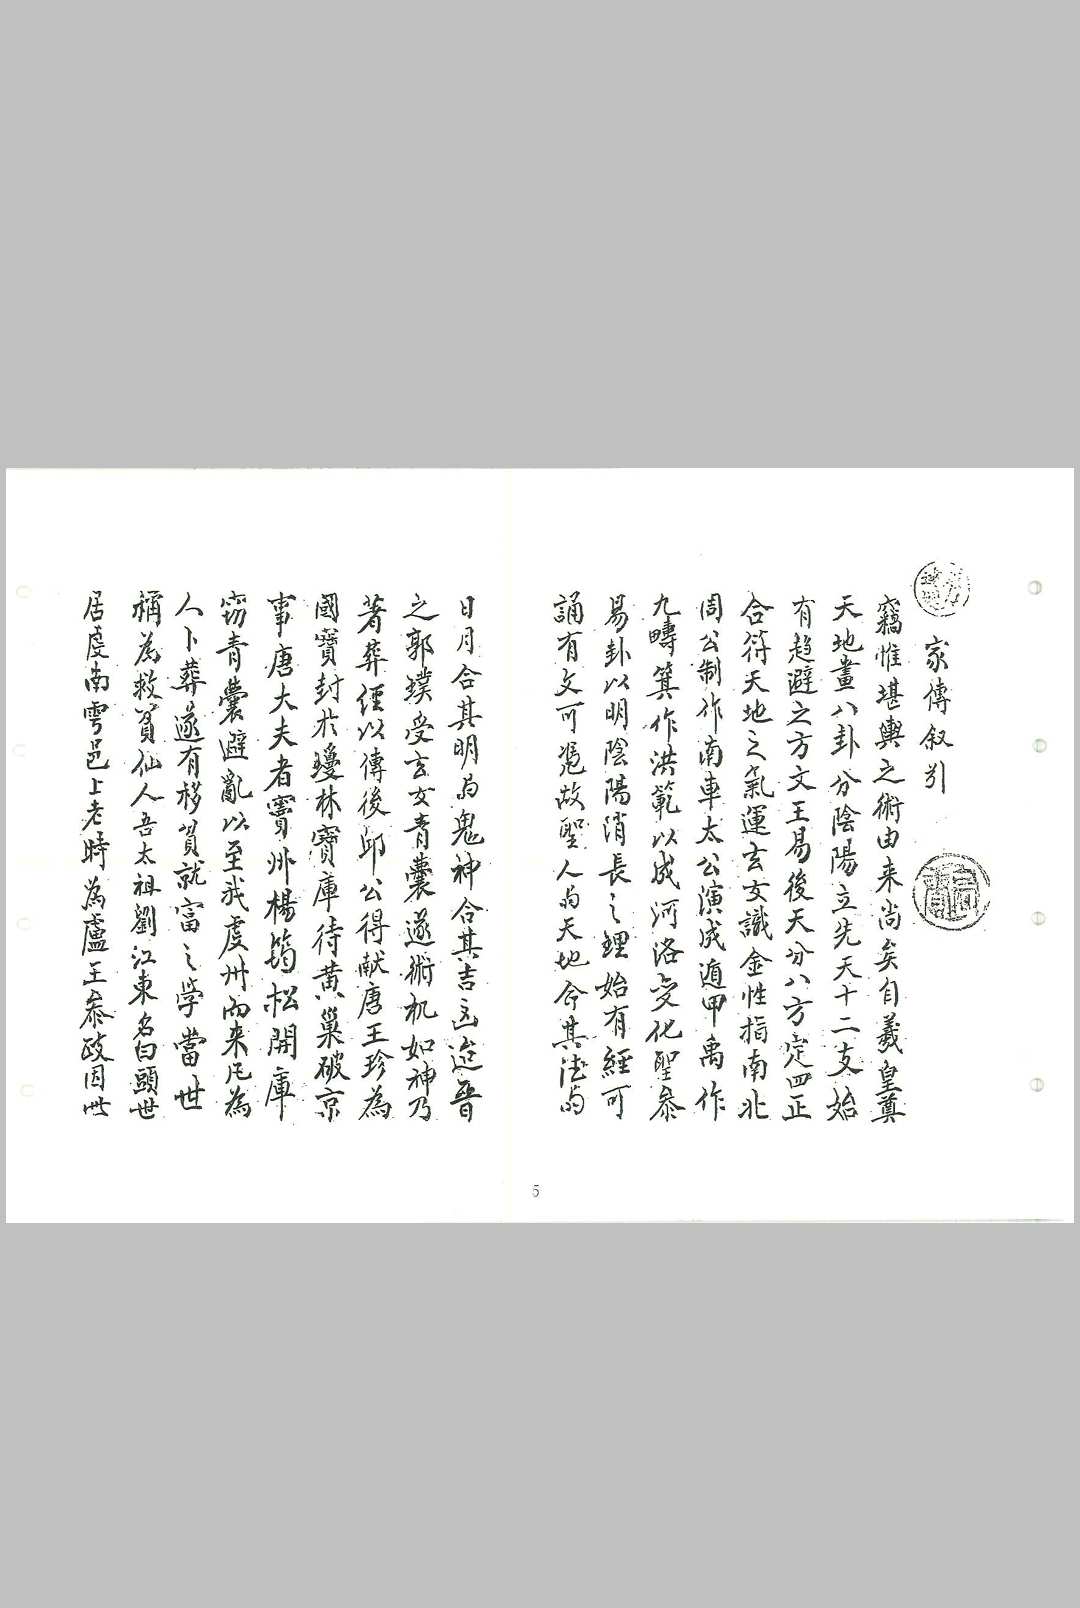 家傳叙引
竊惟堪輿之術由来尚矣自羲皇奠
天地畫八卦分陰陽立先天十二支始
有趋避之方文王易後天分八方定四正
合符天地之氣運玄女識金性指南北
周公制作南車太公演成遁甲禹作
九疇箕作洪範以成河洛变化聖叅
易卦以明陰陽消長之理始有經可
誦有文可凴故聖人与天地合其德与
日月合其明与鬼神合其吉凶迨晋
之郭璞受玄女青囊遂術机如神乃
著葬經以傳後邱公得献唐王珍為
國寶封於瓊林寶庫待黄巢破京
事唐大夫者竇州楊筠松開庫
窃青囊避亂以至我虔州而来凡為
人卜葬遂有移貧就富之学當世
稱為救貧仙人吾太祖劉江東名白頭世
居虔南雩邑上老時為盧王叅政因世
5